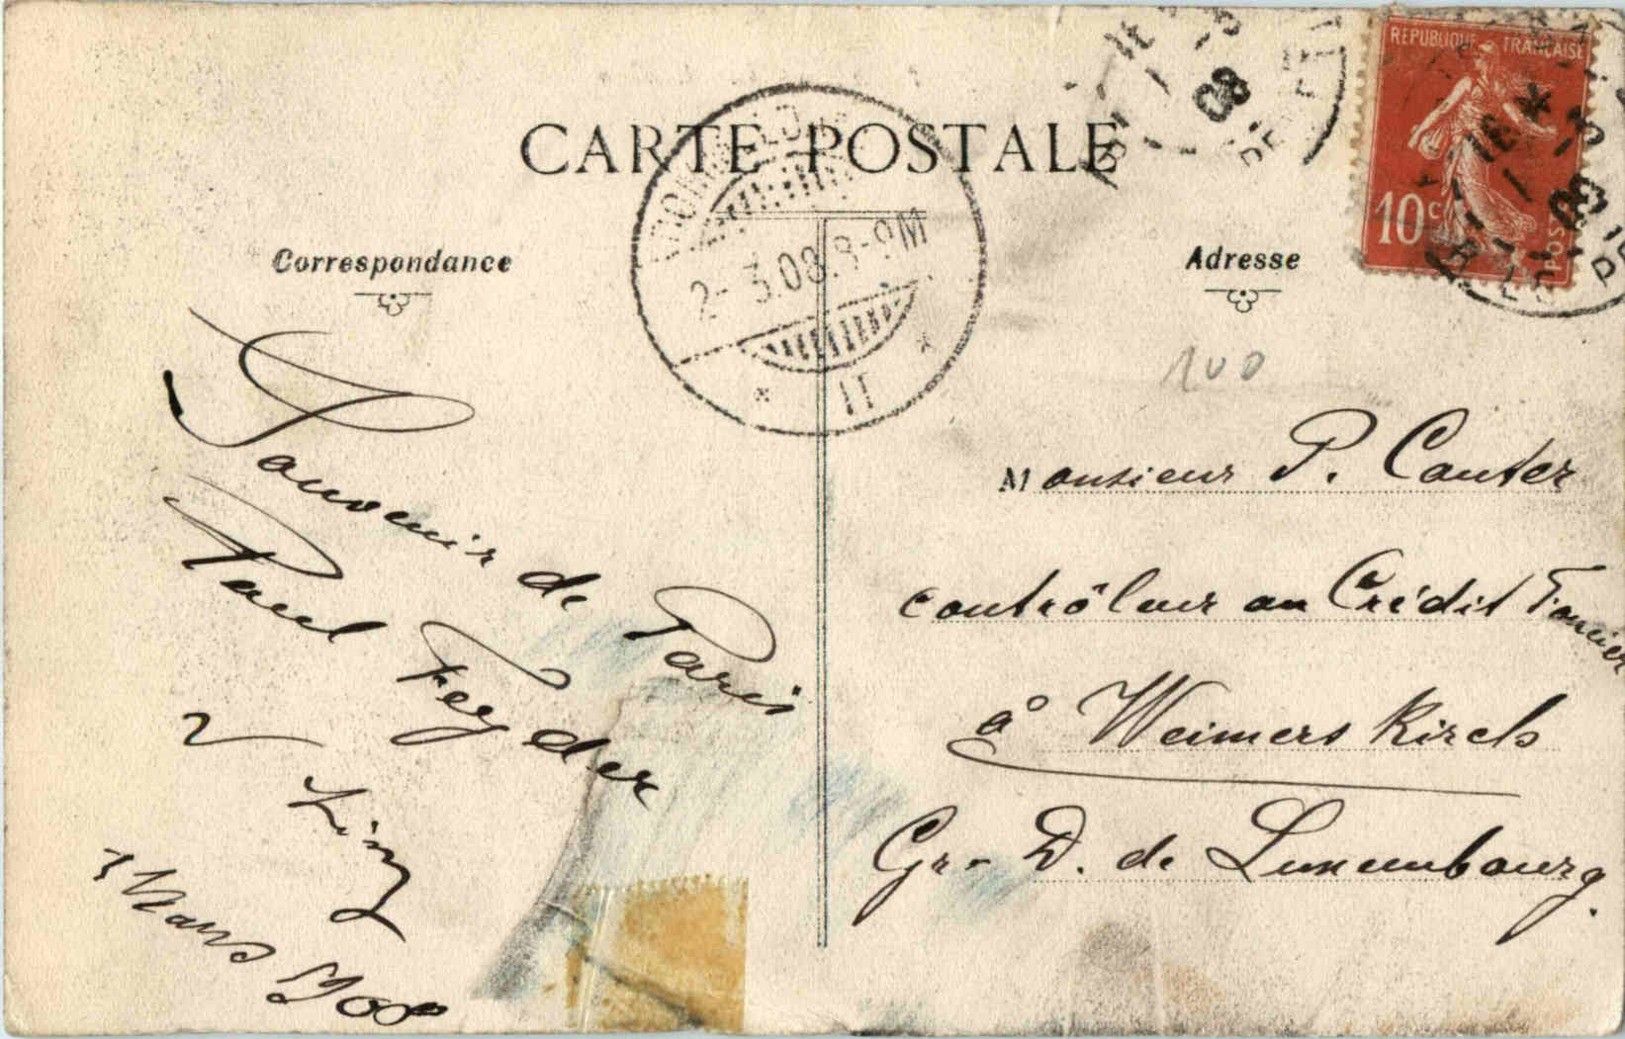 CARTE POSTALE
REPUBLIQUE FRANÇAISE
10c
POSTES
08
2-3.08.8-9M
II
Correspondance
Adresse
100
Souvenir de Paris
Paul Feyder
1 Mars 1908
Monsieur P. Cauter
contrôleur au Crédit Foncier
à Weimerskirch
Gr-D. de Luxembourg.